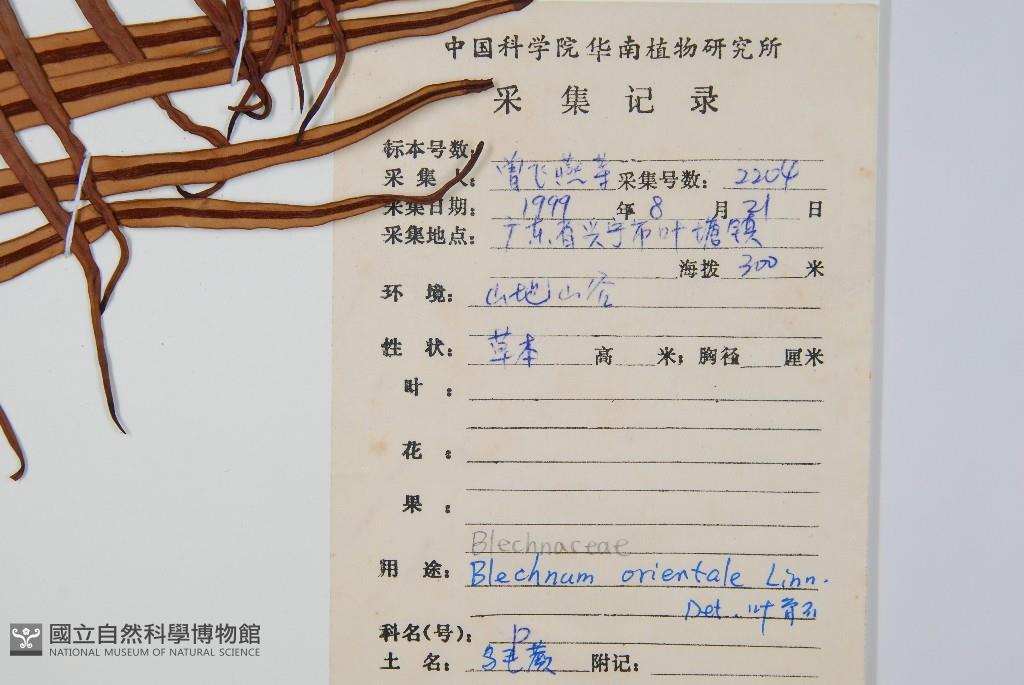 中国科学院华南植物研究所
采集记录
标本号数:
采集人: 曾飞燕等 采集号数: 2204
采集日期: 1999 年 8 月 21 日
采集地点: 广东省兴宁市叶塘镇
海拨 300 米
环境: 山地山谷
性状: 草本 高 米; 胸径 厘米
叶:
花:
果:
Blechnaceae
用途: Blechnum orientale Linn.
Det. 叶
科名(号): P
土名: 乌毛蕨 附记:
國立自然科學博物館
NATIONAL MUSEUM OF NATURAL SCIENCE